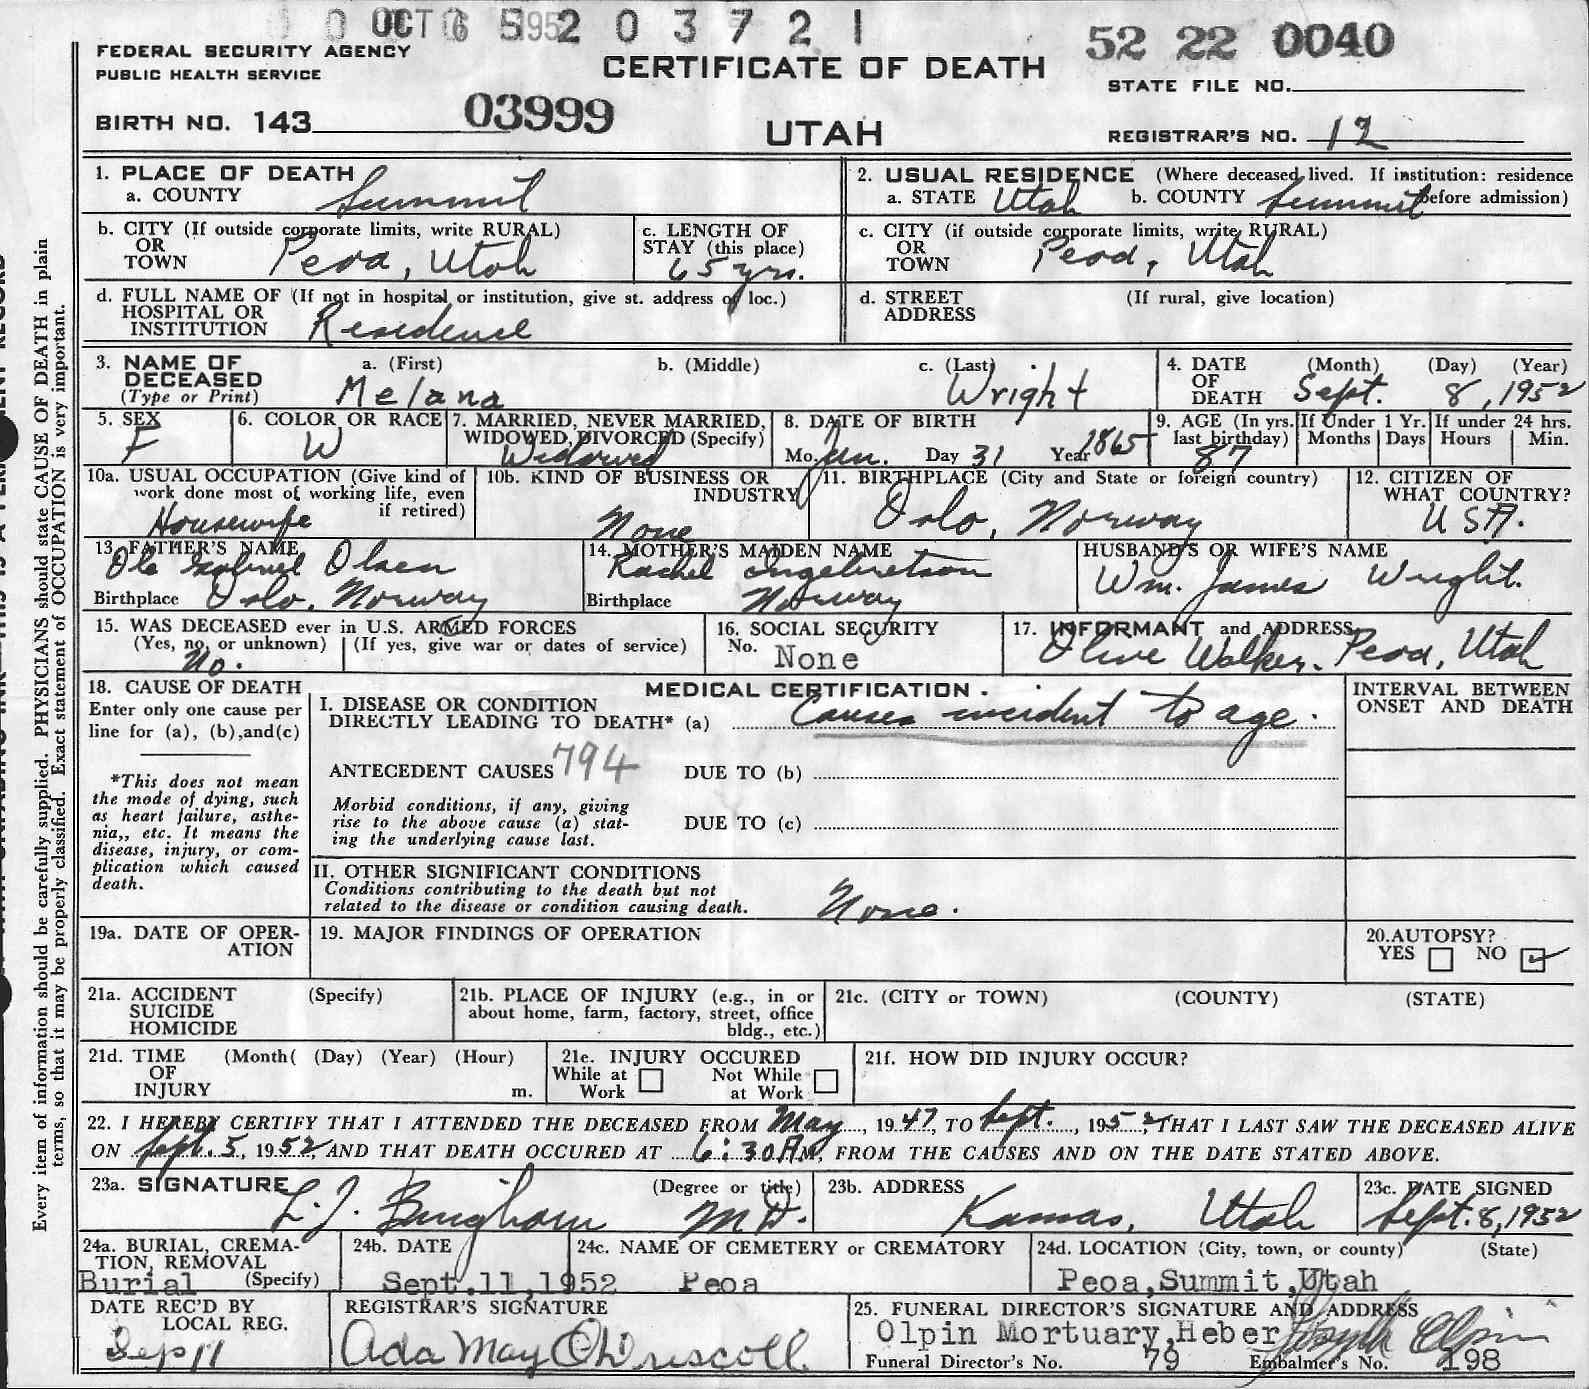 OCT 6 1952 0 3 7 2 1
52 22 0040
FEDERAL SECURITY AGENCY
PUBLIC HEALTH SERVICE
CERTIFICATE OF DEATH
STATE FILE NO.
BIRTH NO. 143 03999
UTAH
REGISTRAR'S NO. 12
1. PLACE OF DEATH
a. COUNTY Summit
2. USUAL RESIDENCE (Where deceased lived. If institution: residence before admission)
a. STATE Utah b. COUNTY Summit
b. CITY (If outside corporate limits, write RURAL)
OR
TOWN Peoa, Utah
c. LENGTH OF
STAY (this place)
65 yrs.
c. CITY (if outside corporate limits, write RURAL)
OR
TOWN Peoa, Utah
d. FULL NAME OF (If not in hospital or institution, give st. address of loc.)
HOSPITAL OR
INSTITUTION Residence
d. STREET (If rural, give location)
ADDRESS
3. NAME OF
DECEASED
(Type or Print)
a. (First) b. (Middle) c. (Last)
Melana Wright
4. DATE OF DEATH (Month) (Day) (Year)
Sept. 8, 1952
5. SEX
F
6. COLOR OR RACE
W
7. MARRIED, NEVER MARRIED,
WIDOWED, DIVORCED (Specify)
Widowed
8. DATE OF BIRTH
Mo. Jan. Day 31 Year 1865
9. AGE (In yrs.
last birthday)
87
If Under 1 Yr.
Months Days
If under 24 hrs.
Hours Min.
10a. USUAL OCCUPATION (Give kind of
work done most of working life, even
if retired)
Housewife
10b. KIND OF BUSINESS OR
INDUSTRY
None
11. BIRTHPLACE (City and State or foreign country)
Oslo, Norway
12. CITIZEN OF
WHAT COUNTRY?
USA.
13. FATHER'S NAME
Ole Gabriel Olsen
Birthplace Oslo, Norway
14. MOTHER'S MAIDEN NAME
Rachel Ingebretson
Birthplace Norway
HUSBAND'S OR WIFE'S NAME
Wm. James Wright.
15. WAS DECEASED ever in U.S. ARMED FORCES
(Yes, no, or unknown) (If yes, give war or dates of service)
No.
16. SOCIAL SECURITY
No. None
17. INFORMANT and ADDRESS
Olive Walker. Peoa, Utah
18. CAUSE OF DEATH
Enter only one cause per
line for (a), (b),and(c)
*This does not mean
the mode of dying, such
as heart failure, asthe-
nia,, etc. It means the
disease, injury, or com-
plication which caused
death.
MEDICAL CERTIFICATION.
I. DISEASE OR CONDITION
DIRECTLY LEADING TO DEATH* (a) Causes incident to age.
ANTECEDENT CAUSES 794 DUE TO (b)
Morbid conditions, if any, giving
rise to the above cause (a) stat-
ing the underlying cause last.
DUE TO (c)
INTERVAL BETWEEN
ONSET AND DEATH
II. OTHER SIGNIFICANT CONDITIONS
Conditions contributing to the death but not
related to the disease or condition causing death.
None.
19a. DATE OF OPER-
ATION
19. MAJOR FINDINGS OF OPERATION
20.AUTOPSY?
YES NO
21a. ACCIDENT (Specify)
SUICIDE
HOMICIDE
21b. PLACE OF INJURY (e.g., in or
about home, farm, factory, street, office
bldg., etc.)
21c. (CITY or TOWN) (COUNTY) (STATE)
21d. TIME (Month( (Day) (Year) (Hour)
OF
INJURY m.
21e. INJURY OCCURED
While at Not While
Work at Work
21f. HOW DID INJURY OCCUR?
22. I HEREBY CERTIFY THAT I ATTENDED THE DECEASED FROM May, 1947, TO Sept., 1952, THAT I LAST SAW THE DECEASED ALIVE
ON Sept. 5, 1952 AND THAT DEATH OCCURED AT 6:30 A M, FROM THE CAUSES AND ON THE DATE STATED ABOVE.
23a. SIGNATURE (Degree or title)
L.J. Bingham M.D.
23b. ADDRESS
Kamas, Utah
23c. DATE SIGNED
Sept. 8, 1952
24a. BURIAL, CREMA-
TION, REMOVAL
Burial (Specify)
24b. DATE
Sept.11,1952
24c. NAME OF CEMETERY or CREMATORY
Peoa
24d. LOCATION (City, town, or county) (State)
Peoa,Summit,Utah
DATE REC'D BY
LOCAL REG.
Sep 11
REGISTRAR'S SIGNATURE
Ada May O'Driscoll
25. FUNERAL DIRECTOR'S SIGNATURE AND ADDRESS
Olpin Mortuary,Heber Olpin
Funeral Director's No. 79 Embalmer's No. 198
Every item of information should be carefully supplied. PHYSICIANS should state CAUSE OF DEATH in plain
terms, so that it may be properly classified. Exact statement of OCCUPATION is very important.